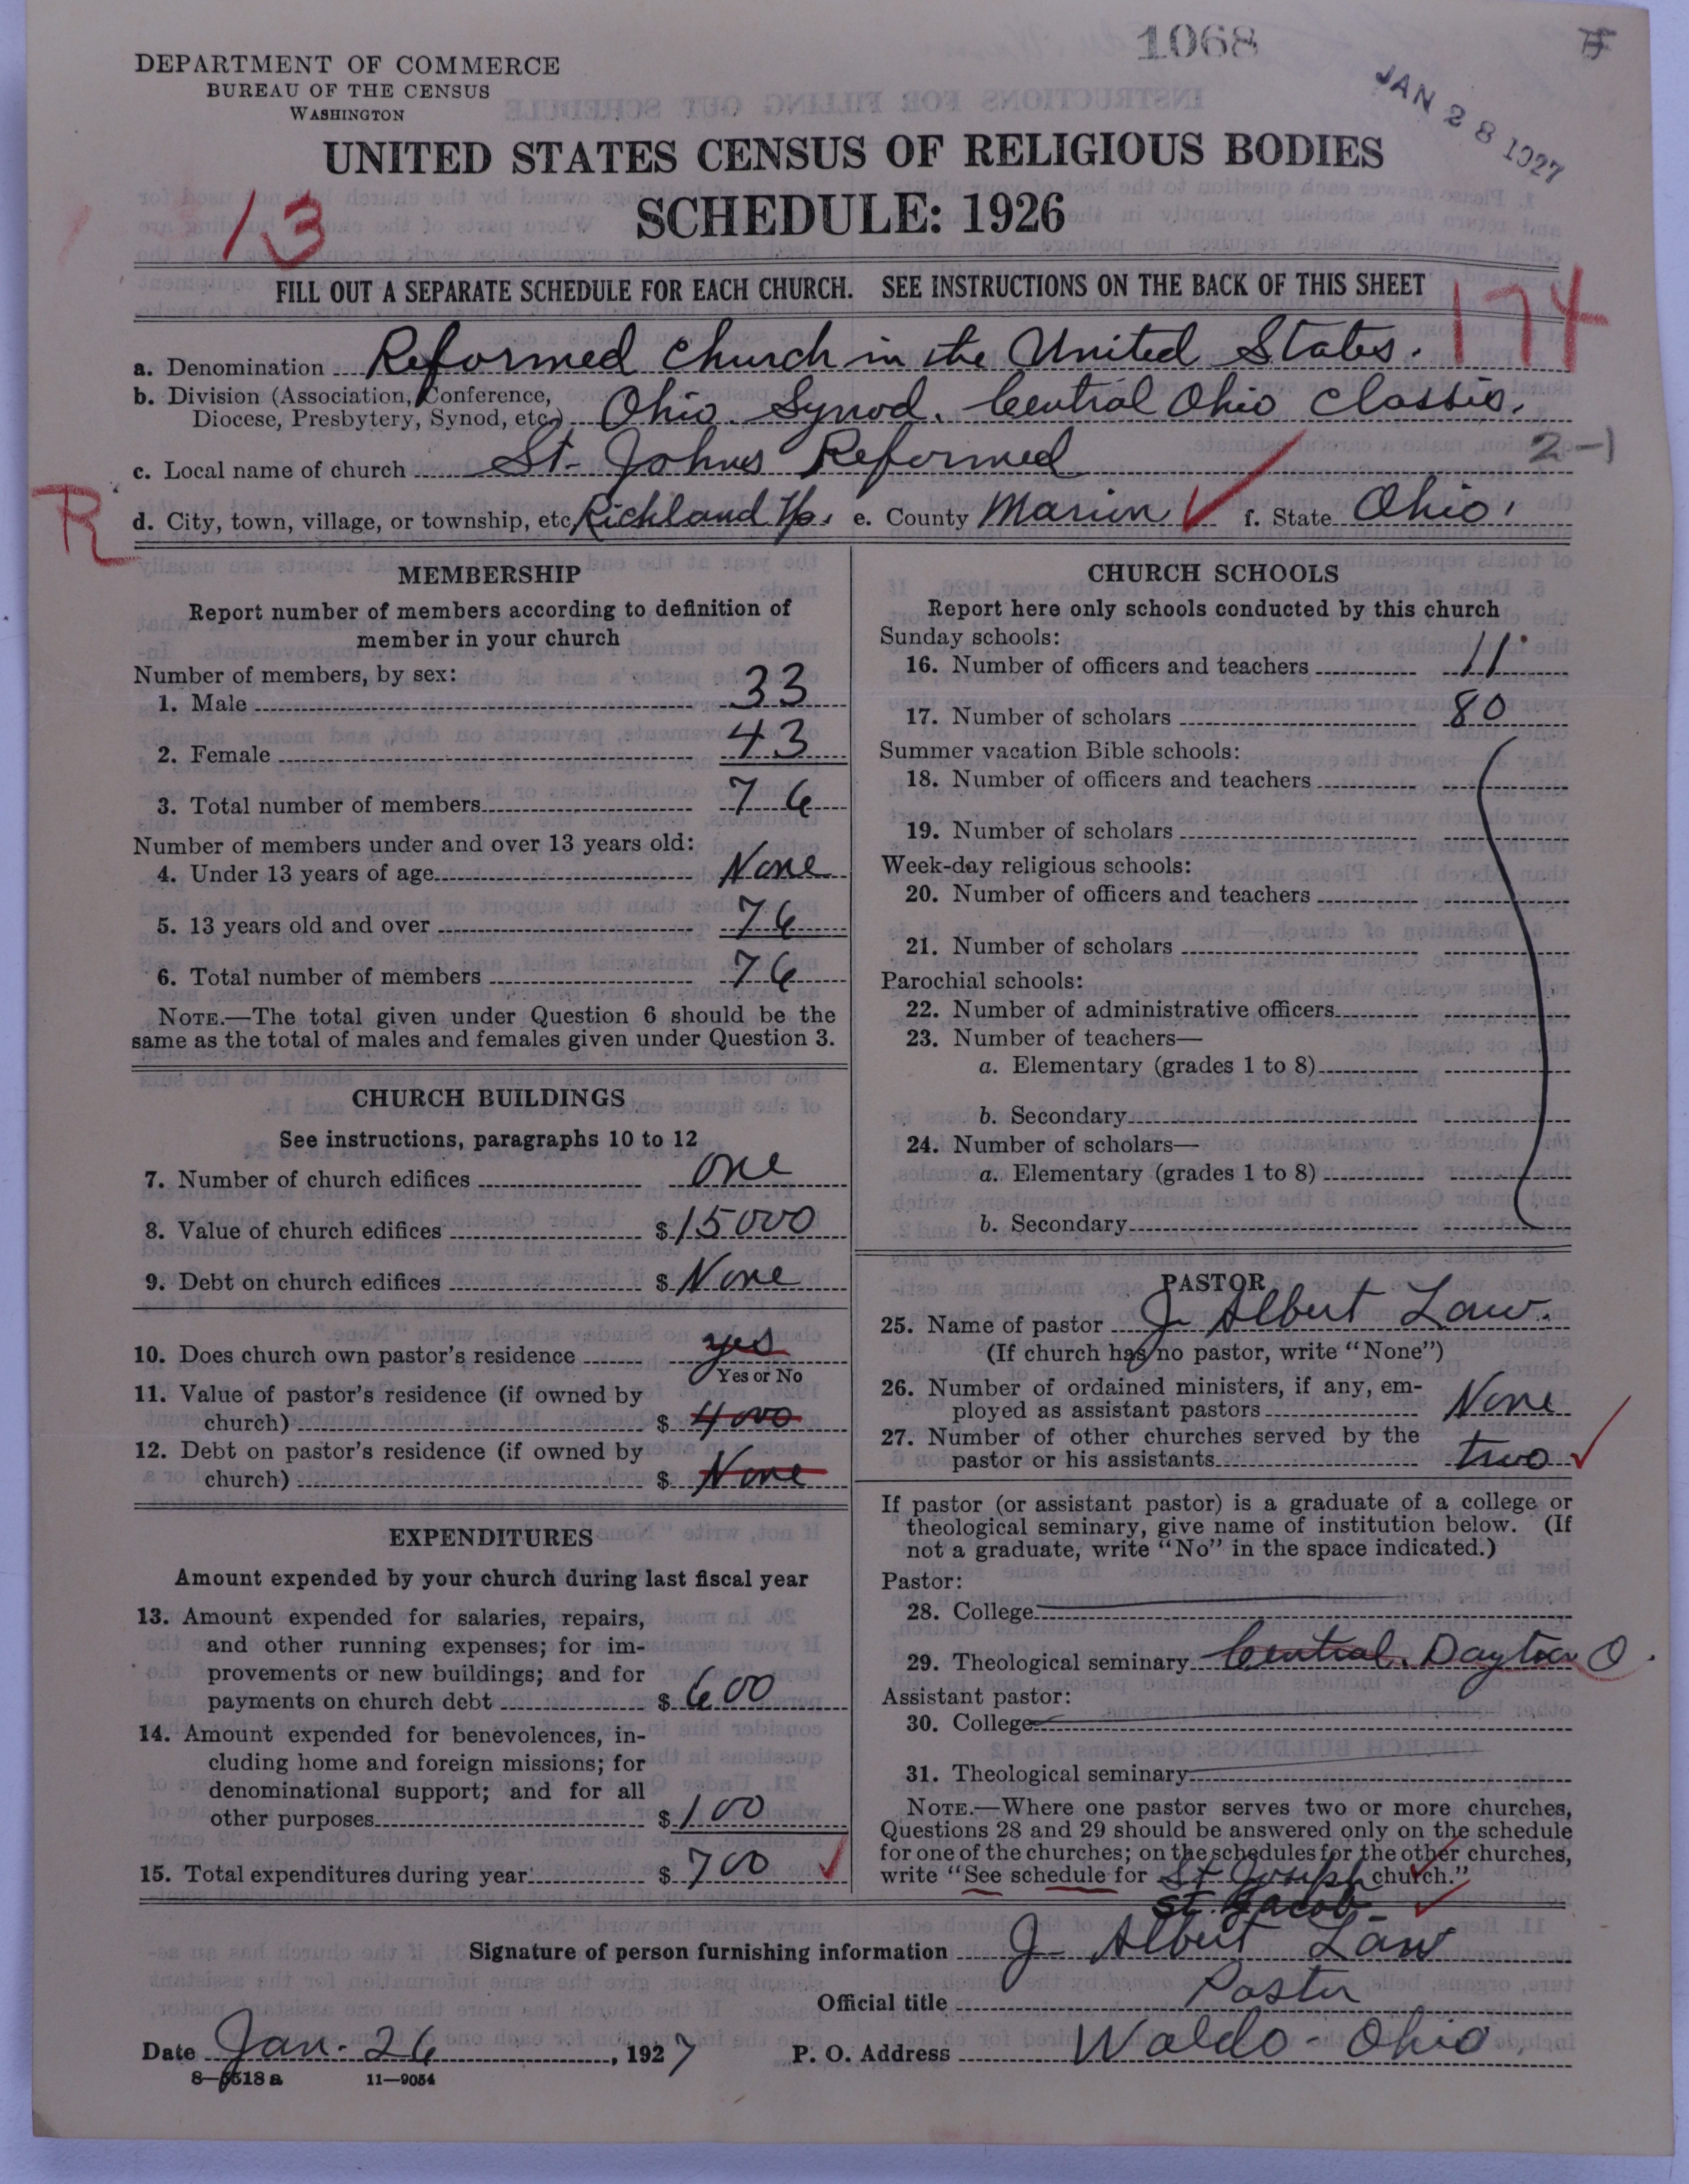 1068
DEPARTMENT OF COMMERCE
BUREAU OF THE CENSUS
WASHINGTON
JAN 28 1927
UNITED STATES CENSUS OF RELIGIOUS BODIES
SCHEDULE: 1926
13
FILL OUT A SEPARATE SCHEDULE FOR EACH CHURCH. SEE INSTRUCTIONS ON THE BACK OF THIS SHEET
174
a. Denomination Reformed Church in the United States.
b. Division (Association, Conference,
Diocese, Presbytery, Synod, etc.) Ohio Synod. Central Ohio Classis.
c. Local name of church St. Johns Reformed 2-1
R
d. City, town, village, or township, etc. Richland Tp. e. County Marion f. State Ohio.
MEMBERSHIP
Report number of members according to definition of
member in your church
Number of members, by sex:
1. Male 33
2. Female 43
3. Total number of members 76
Number of members under and over 13 years old:
4. Under 13 years of age None
5. 13 years old and over 76
6. Total number of members 76
NOTE.—The total given under Question 6 should be the
same as the total of males and females given under Question 3.
CHURCH BUILDINGS
See instructions, paragraphs 10 to 12
7. Number of church edifices one
8. Value of church edifices $ 15000
9. Debt on church edifices $ None
10. Does church own pastor's residence yes
Yes or No
11. Value of pastor's residence (if owned by
church) $ 4000
12. Debt on pastor's residence (if owned by
church) $ None
EXPENDITURES
Amount expended by your church during last fiscal year
13. Amount expended for salaries, repairs,
and other running expenses; for im-
provements or new buildings; and for
payments on church debt $ 600
14. Amount expended for benevolences, in-
cluding home and foreign missions; for
denominational support; and for all
other purposes $ 100
15. Total expenditures during year $ 700
CHURCH SCHOOLS
Report here only schools conducted by this church
Sunday schools:
16. Number of officers and teachers 11
17. Number of scholars 80
Summer vacation Bible schools:
18. Number of officers and teachers
19. Number of scholars
Week-day religious schools:
20. Number of officers and teachers
21. Number of scholars
Parochial schools:
22. Number of administrative officers
23. Number of teachers—
a. Elementary (grades 1 to 8)
b. Secondary
24. Number of scholars—
a. Elementary (grades 1 to 8)
b. Secondary
PASTOR
25. Name of pastor J. Albert Law.
(If church has no pastor, write "None")
26. Number of ordained ministers, if any, em-
ployed as assistant pastors None
27. Number of other churches served by the
pastor or his assistants two
If pastor (or assistant pastor) is a graduate of a college or
theological seminary, give name of institution below. (If
not a graduate, write "No" in the space indicated.)
Pastor:
28. College
29. Theological seminary Central. Dayton O.
Assistant pastor:
30. College
31. Theological seminary
NOTE.—Where one pastor serves two or more churches,
Questions 28 and 29 should be answered only on the schedule
for one of the churches; on the schedules for the other churches,
write "See schedule for St Joseph church."
St. Jacob
Signature of person furnishing information J Albert Law
Official title Pastor
Date Jan. 26, 1927 P. O. Address Waldo - Ohio
8—5518 a 11—9054